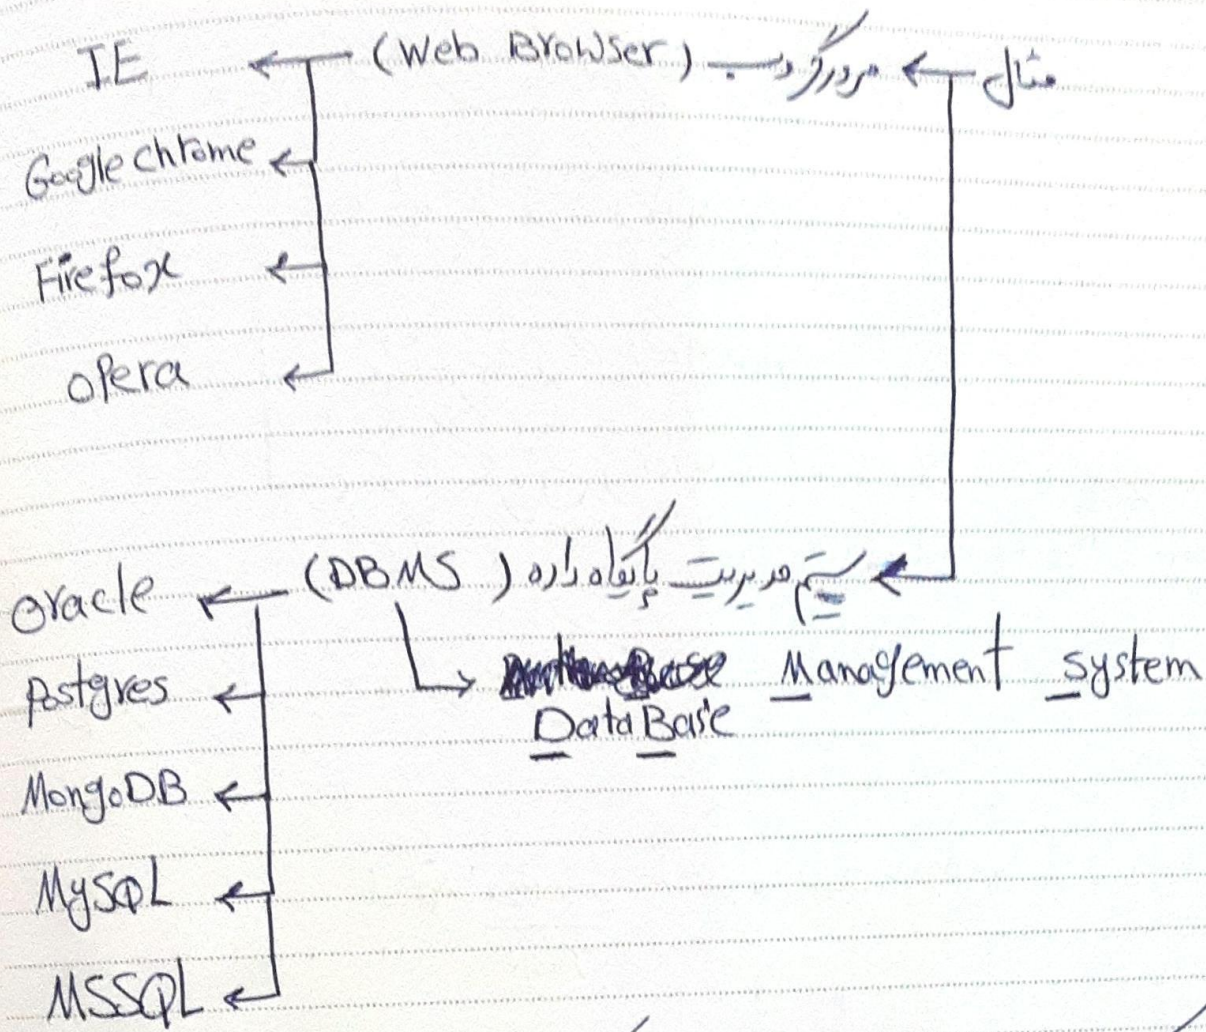 مثال ← مرورگر وب (Web Browser) ← IE
← Google chrome
← Firefox
← opera
← سیستم مدیریت پایگاه داده (DBMS) ← oracle
→ Management System
← Postgres
DataBase
← MongoDB
← MySQL
← MSSQL